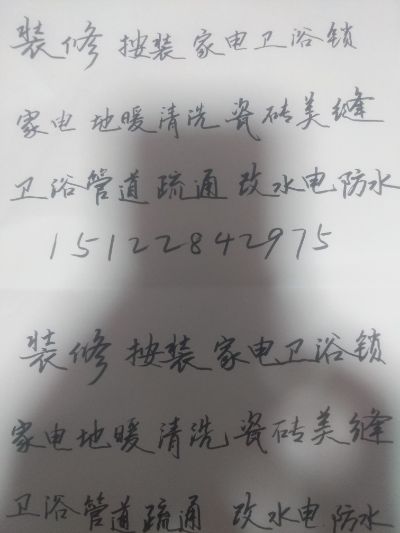 装修 按装 家电卫浴锁
家电 地暖清洗 瓷砖美缝
卫浴管道疏通 改水电防水
15122842975
装修 按装 家电卫浴锁
家电地暖清洗 瓷砖美缝
卫浴管道疏通 改水电防水